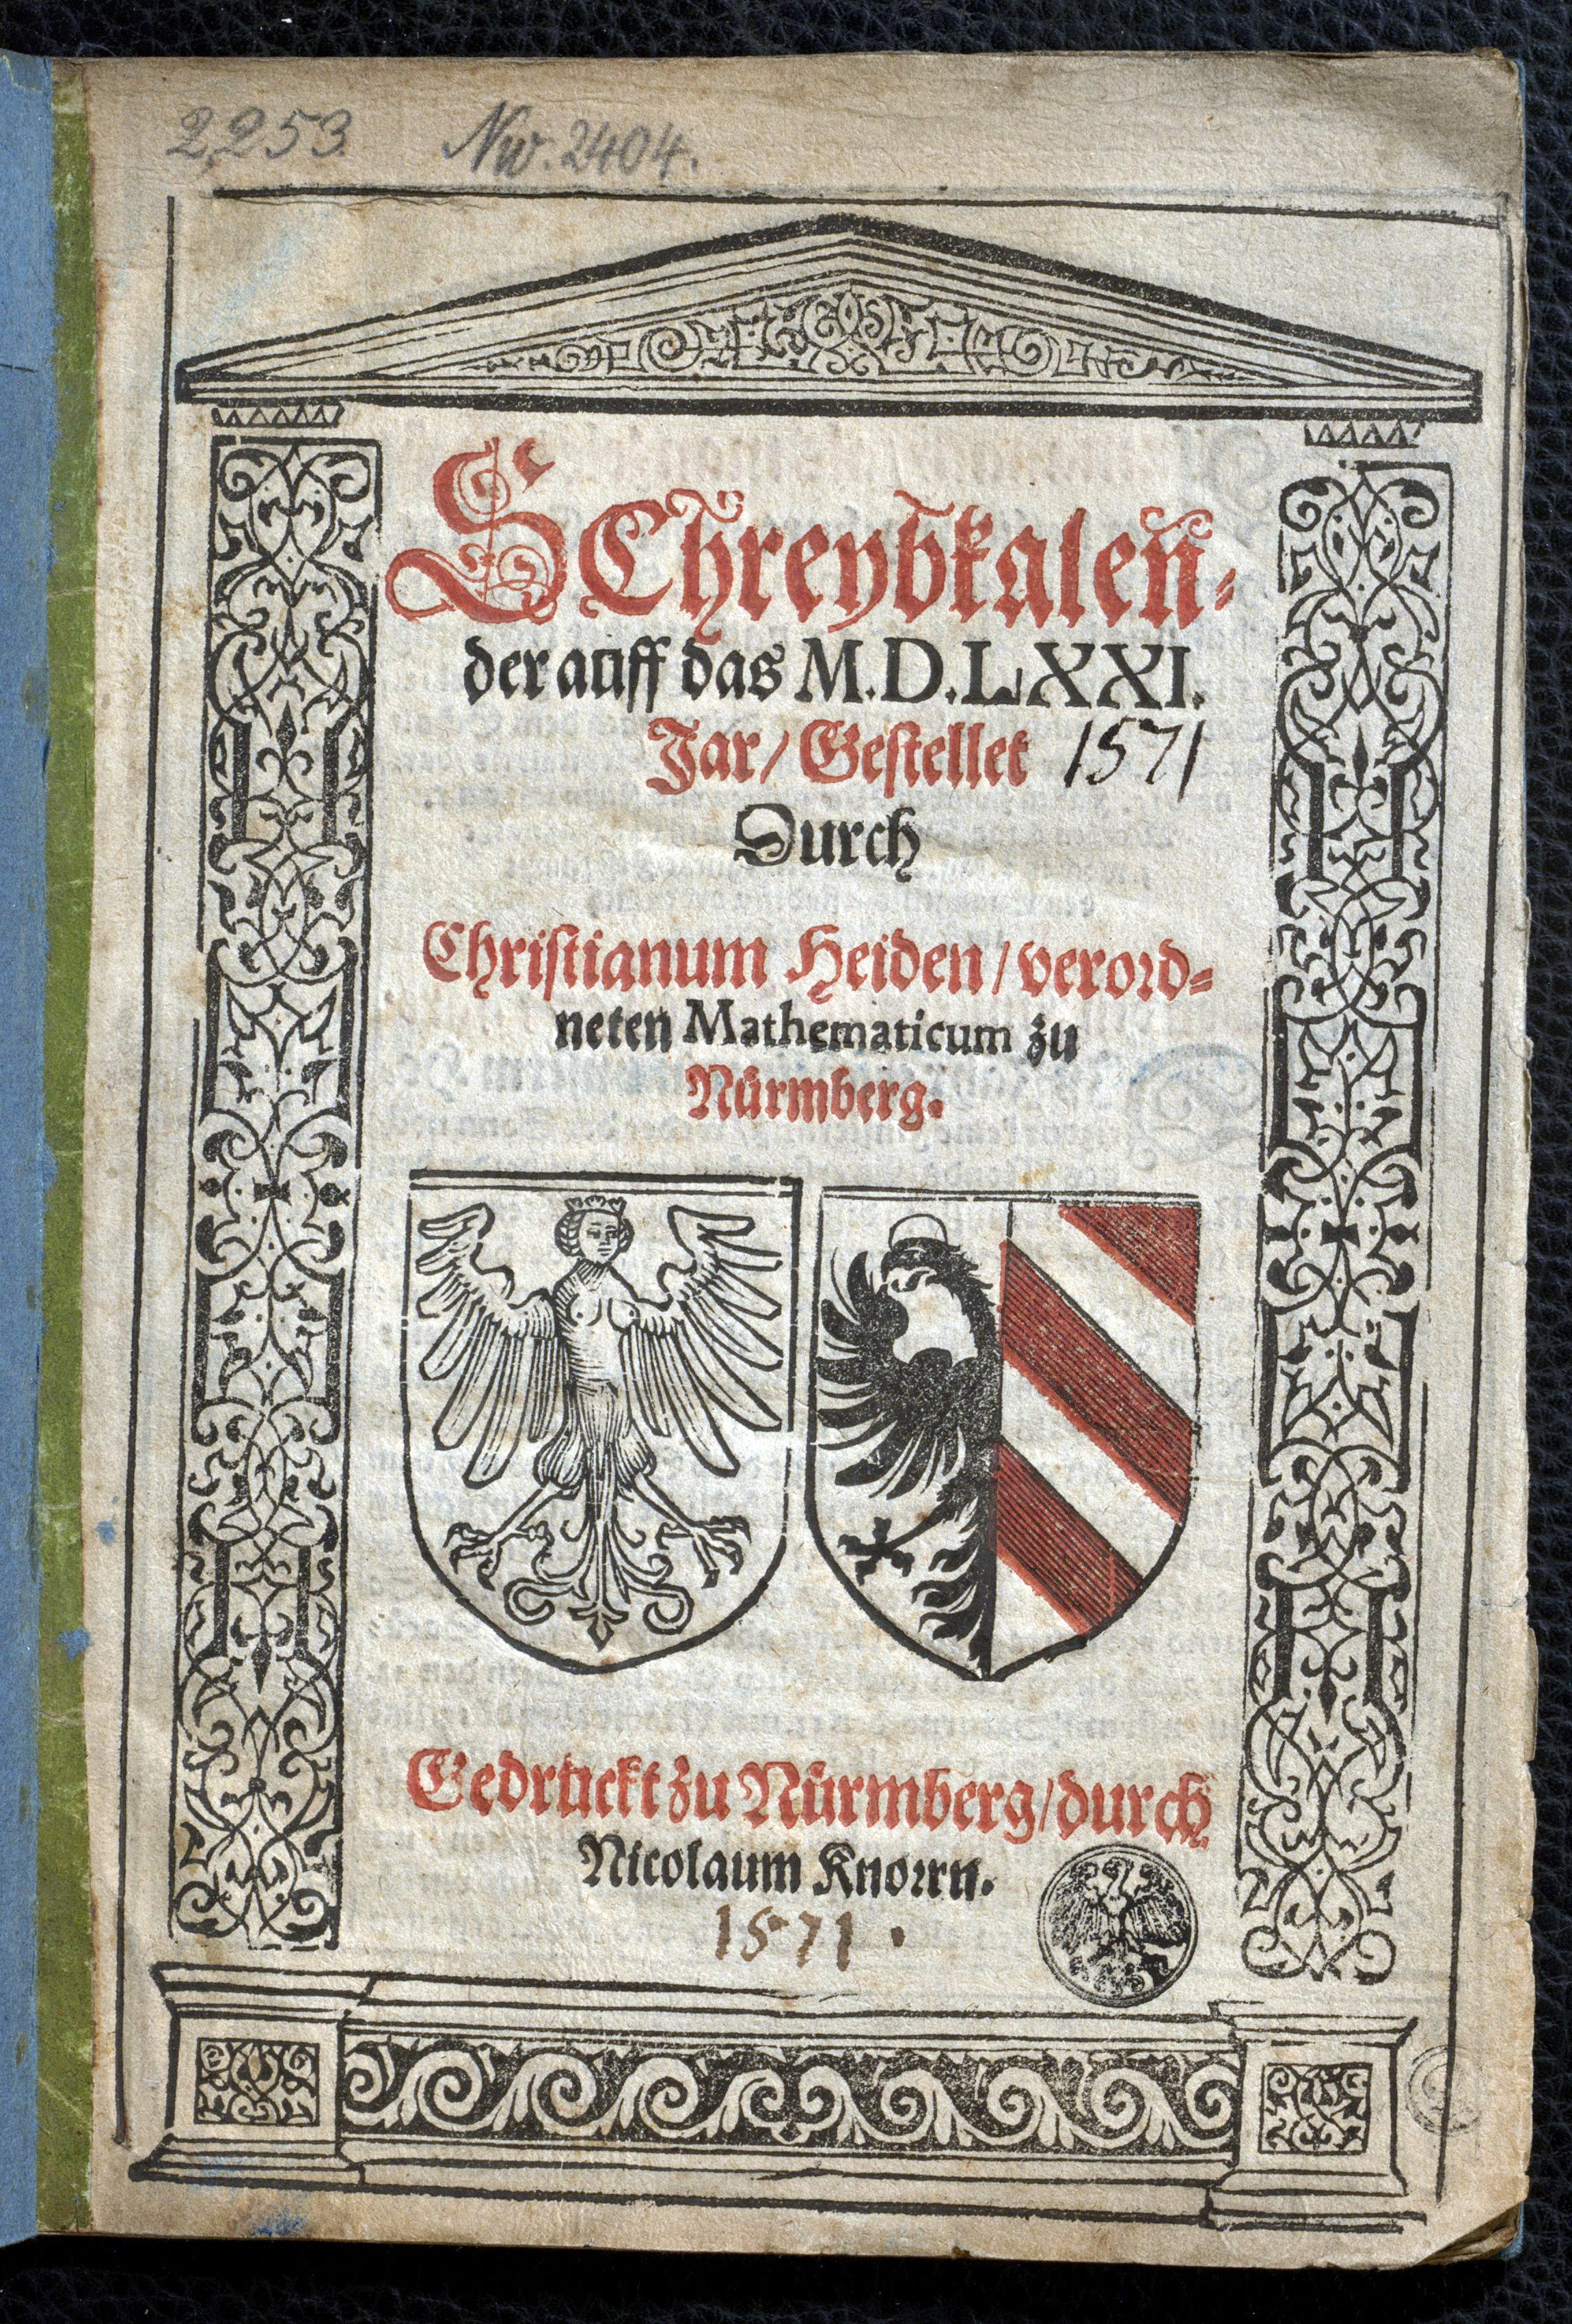 2,253. Nw. 2404.
SChreybkalen-
der auff das M.D.LXXI.
Jar/ Gestellet 1571
Durch
Christianum Heiden/ verord-
neten Mathematicum zu
Nürmberg.
Gedruckt zu Nürmberg/ durch
Nicolaum Knorrn.
1571.